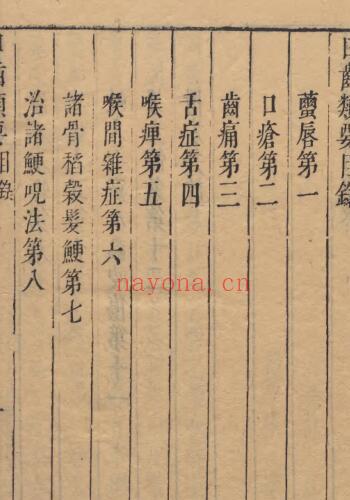 口齒類要目錄
蠒唇第一
口瘡第二
齒痛第三
舌症第四
喉痺第五
喉間雜症第六
諸骨稻穀髮鯁第七
治諸鯁呪法第八
口齒類要目錄
nayona.cn